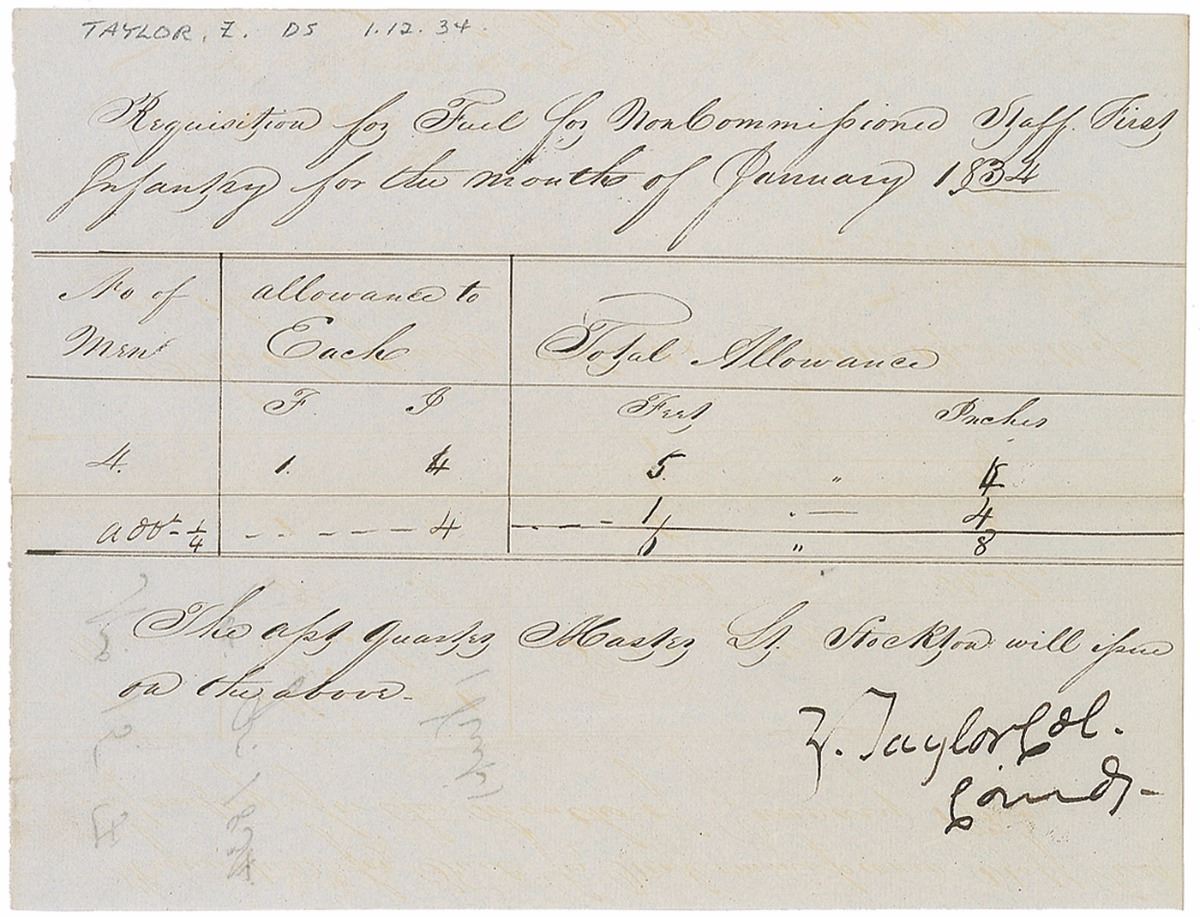 TAYLOR, Z. DS 1.12.34
Requisition for Fuel for NonCommissioned Staff First
Infantry for the months of January 1834
No of allowance to
Men Each Total Allowance
F. I Feet Inches
4. 1. 4 5. " 4
add - 1/4 - - - - - 4 - - - 1 " — 4
6 " 8
The asst Quarter Master Lt. Stockton will issue
on the above.
Z. Taylor Col.
Comdg-